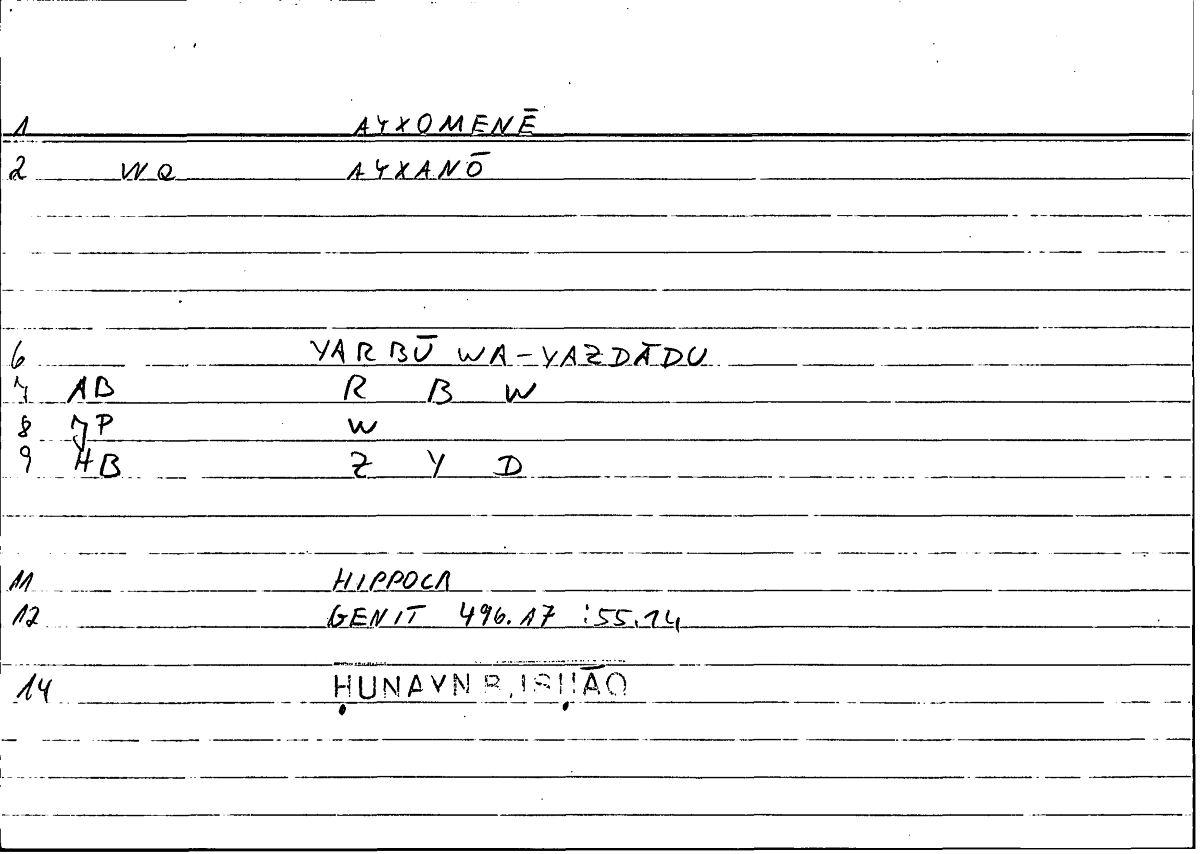 1 AYXOMENĒ
2 WQ AYXANŌ
6 YARBŪ WA-YAZDĀDU
7 AB R B W
8 JP W
9 HB Z Y D
11 HIPPOCR
12 GENIT 496.17 :55.14
14 ḤUNAYN B. ISḤĀQ